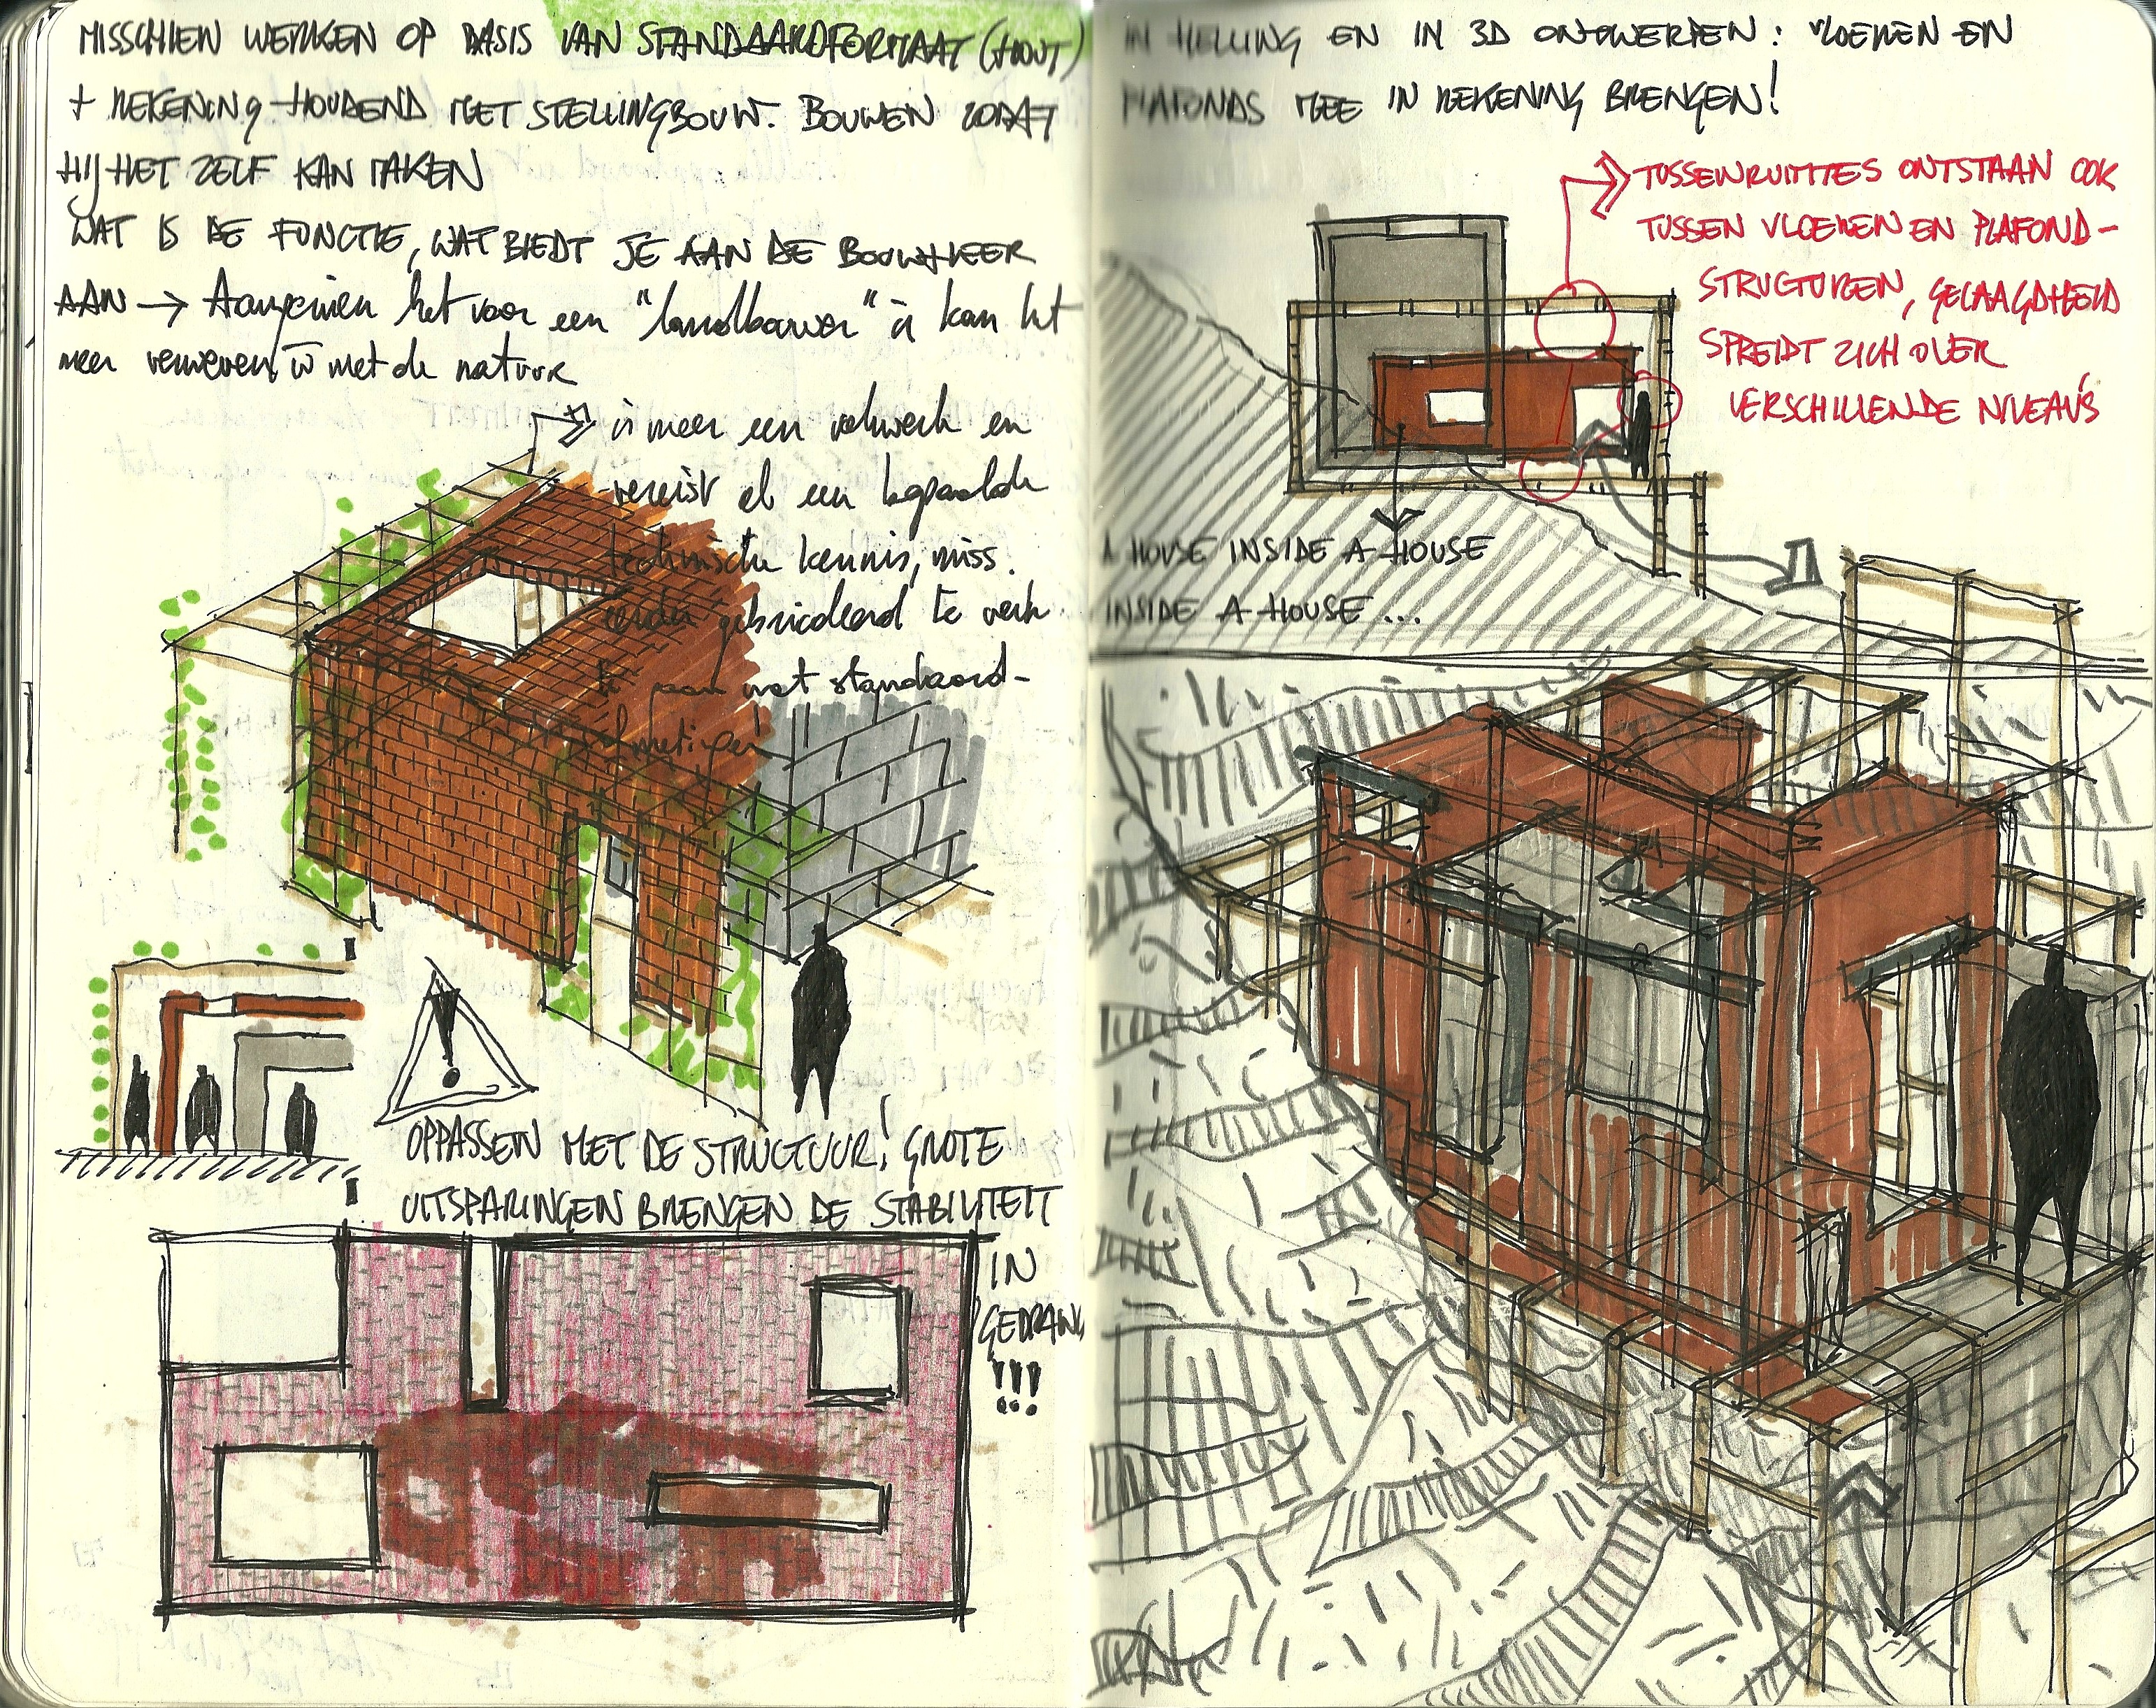 MISSCHIEN WERKEN OP BASIS VAN STANDAARDFORMAAT (HOUT)
+ REKENING HOUDEND MET STELLINGBOUW. BOUWEN ZODAT
HIJ HET ZELF KAN MAKEN
WAT IS DE FUNCTIE, WAT BIEDT JE AAN DE BOUWHEER
AAN → Aangezien het voor een "landbouwer" is kan het
meer verweven met de natuur
is meer een vakwerk en
vereist al een bepaalde
technische kennis, miss.
te werk
te gaan met standaard-
OPPASSEN MET DE STRUCTUUR! GROTE
UITSPARINGEN BRENGEN DE STABILITEIT
IN
GEDRANG
!!!
IN HELLING EN IN 3D ONTWERPEN: VLOEREN EN
PLAFONDS MEE IN REKENING BRENGEN!
TUSSENRUIMTES ONTSTAAN OOK
TUSSEN VLOEREN EN PLAFOND-
STRUCTUREN, GELAAGDHEID
SPREIDT ZICH OVER
VERSCHILLENDE NIVEAU'S
A HOUSE INSIDE A HOUSE
INSIDE A HOUSE ...